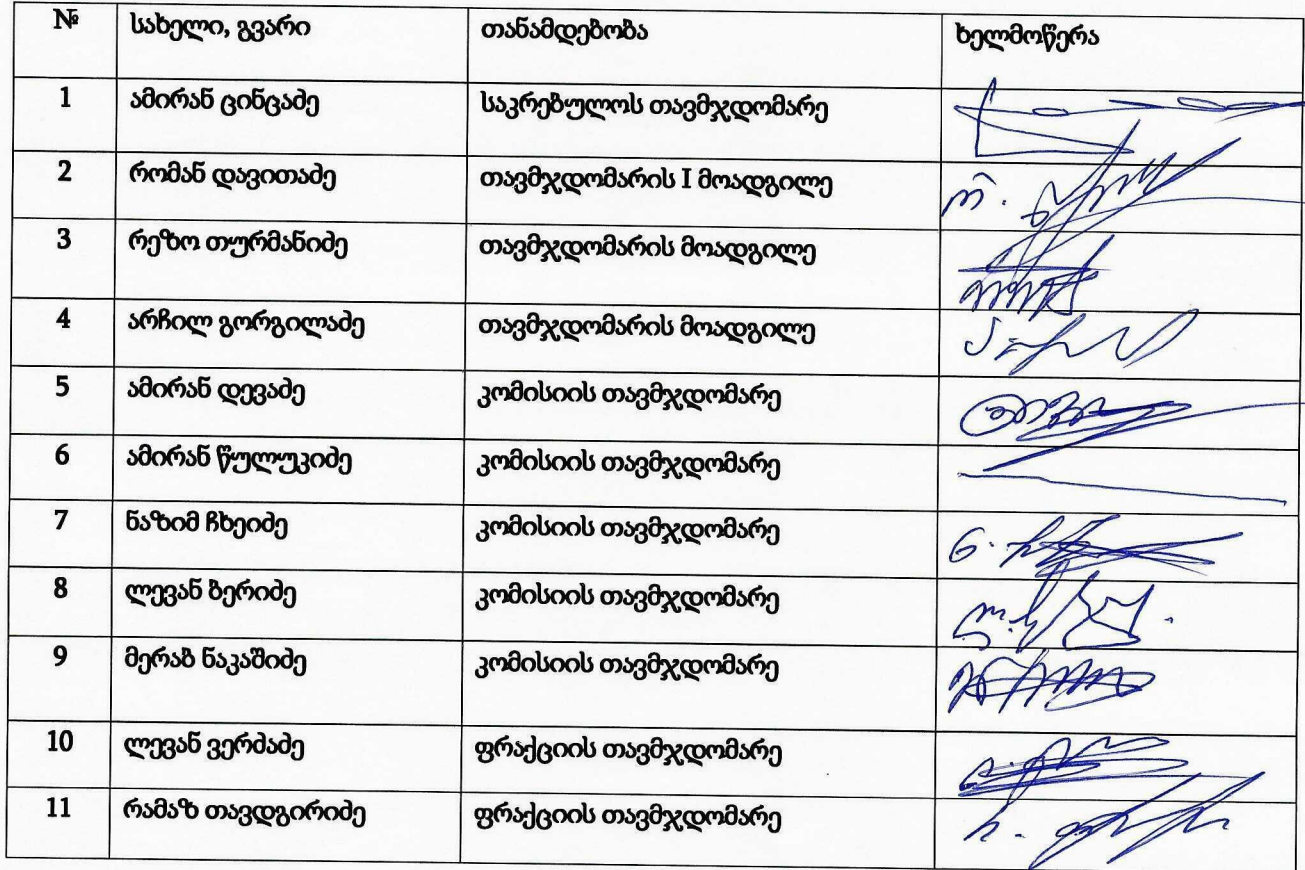 № სახელი, გვარი თანამდებობა ხელმოწერა
1 ამირან ცინცაძე საკრებულოს თავმჯდომარე
2 რომან დავითაძე თავმჯდომარის I მოადგილე
3 რეზო თურმანიძე თავმჯდომარის მოადგილე
4 არჩილ გორგილაძე თავმჯდომარის მოადგილე
5 ამირან დევაძე კომისიის თავმჯდომარე
6 ამირან წულუკიძე კომისიის თავმჯდომარე
7 ნაზიმ ჩხეიძე კომისიის თავმჯდომარე
8 ლევან ბერიძე კომისიის თავმჯდომარე
9 მერაბ ნაკაშიძე კომისიის თავმჯდომარე
10 ლევან ვერძაძე ფრაქციის თავმჯდომარე
11 რამაზ თავდგირიძე ფრაქციის თავმჯდომარე